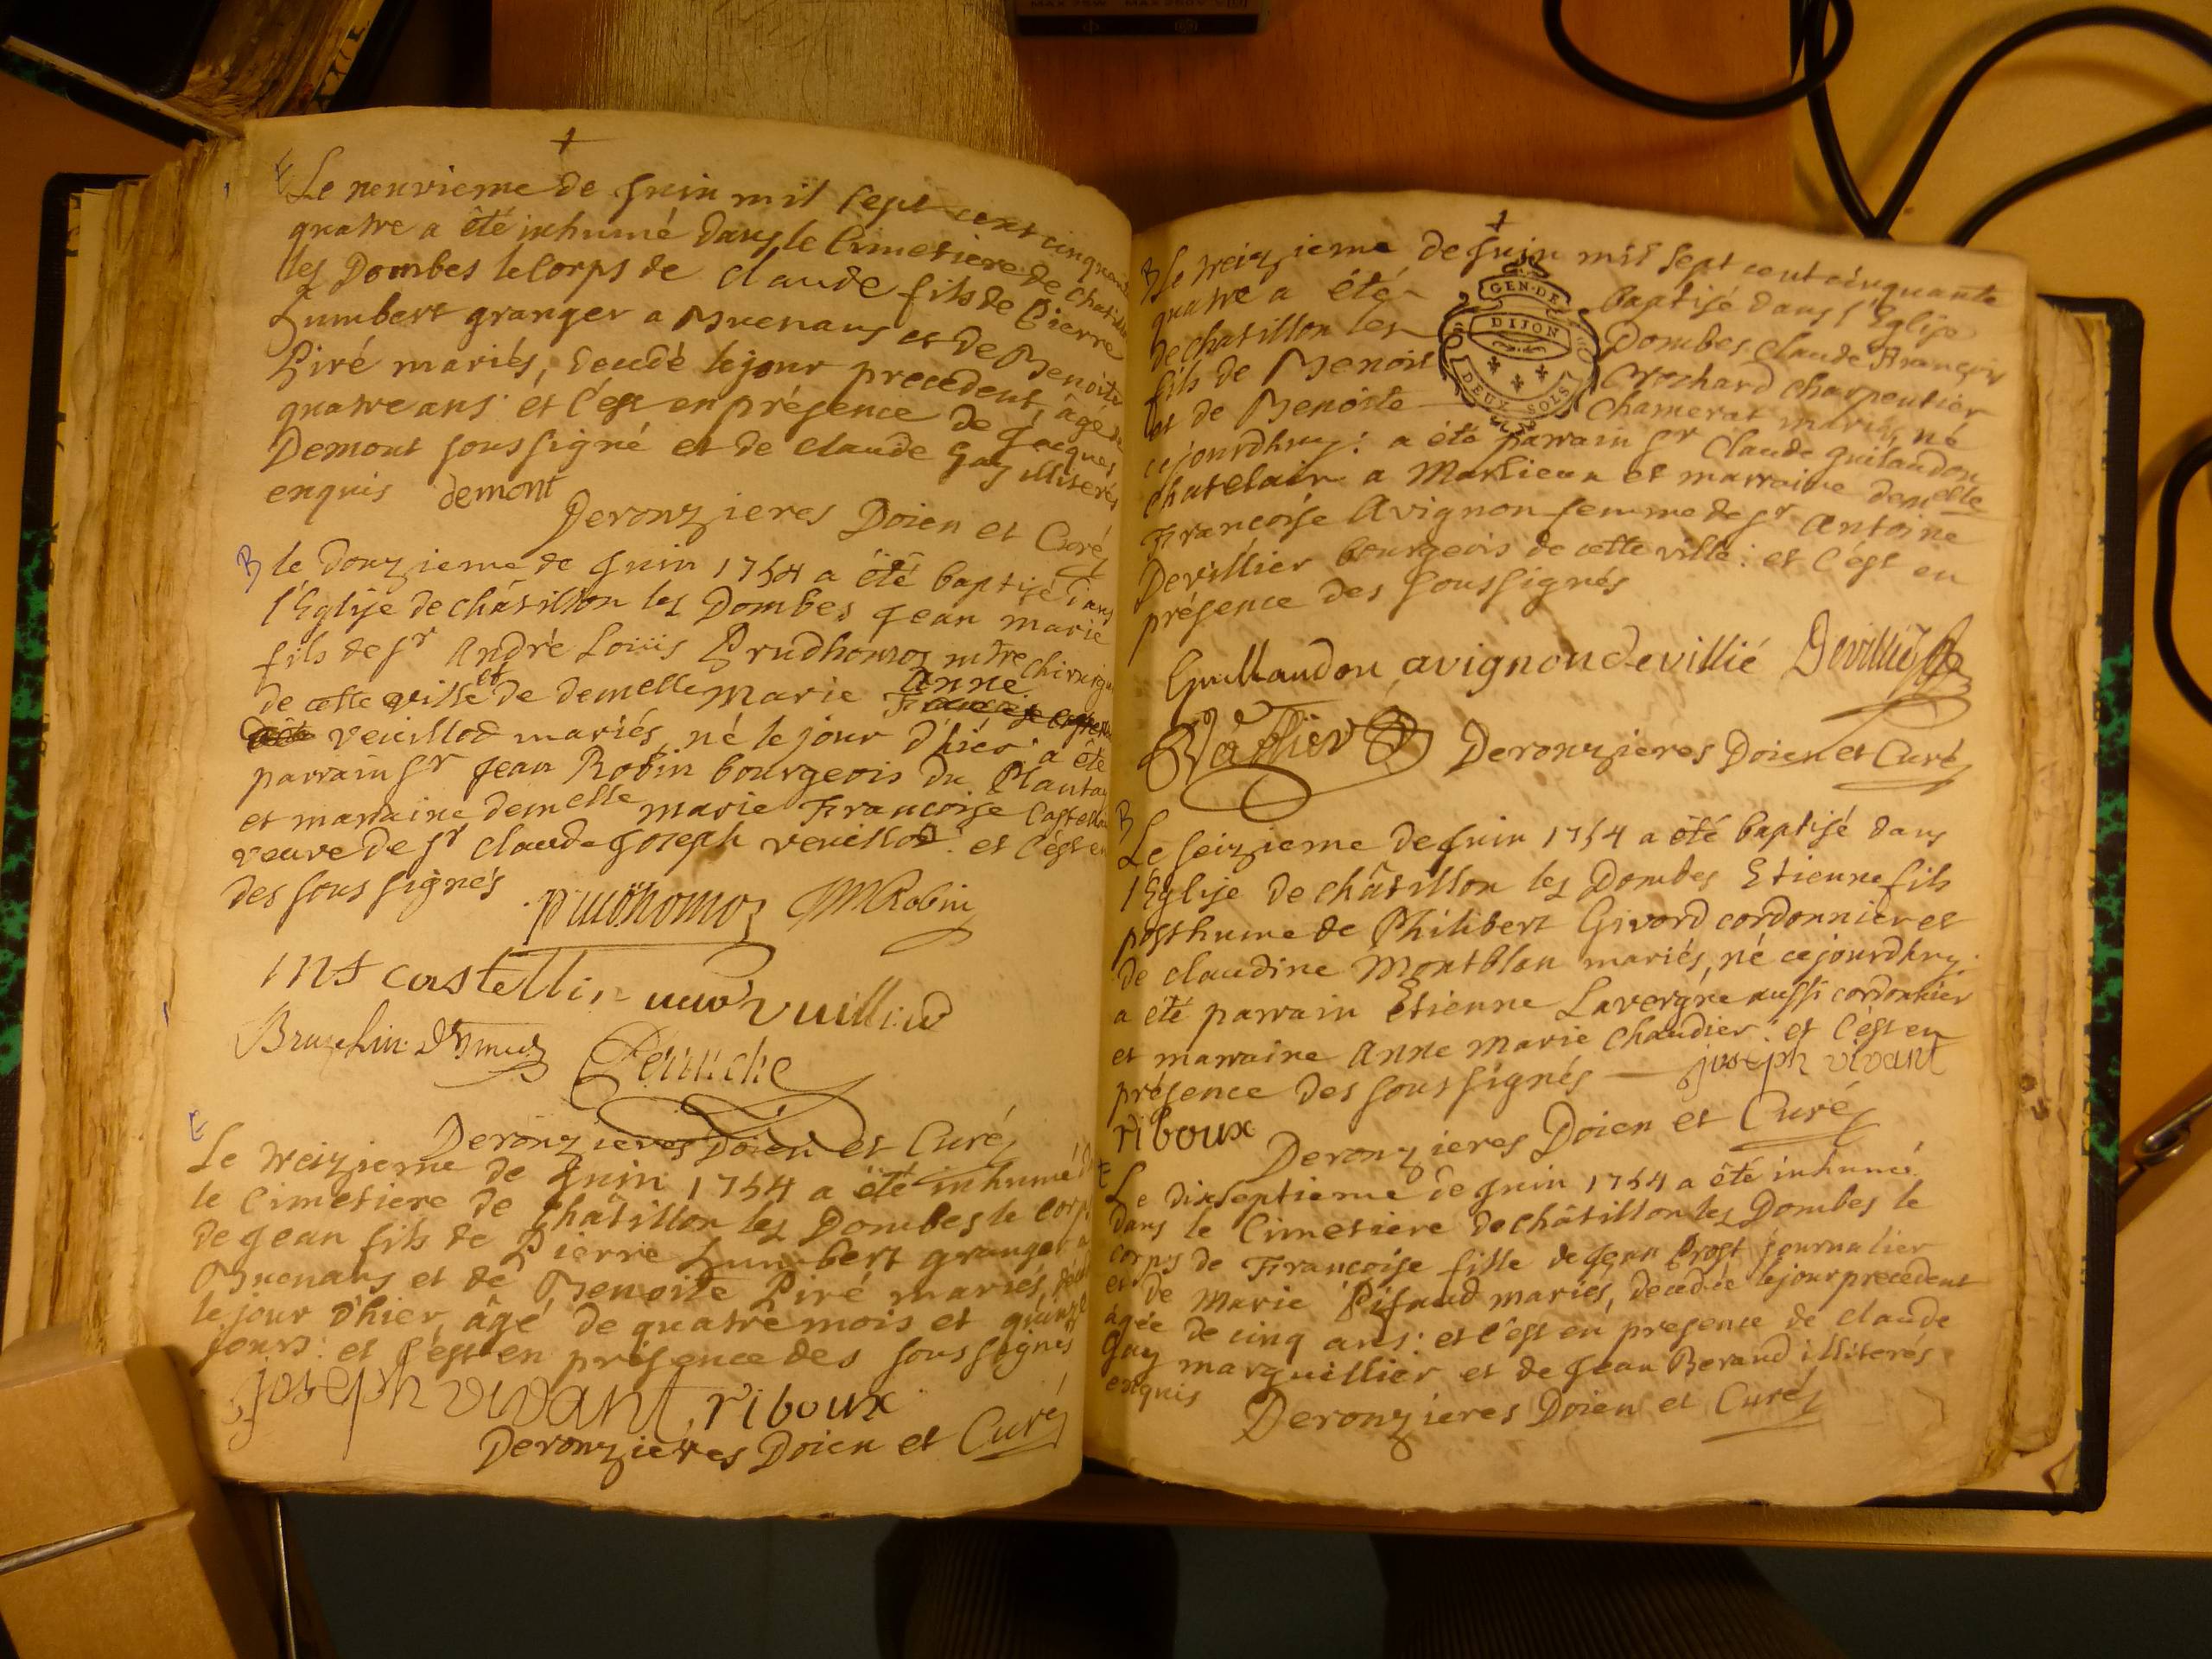 E Le neuvieme de Juin mil sept cent cinquante
quatre a été inhumé dans le Cimetiere de Chatillon
les Dombes le Corps de claude fils de Pierre
humbert granger a Buenans et de Benoite
Piré mariés, decedé le jour precedent, âgé de
quatre ans: et c'est en présence de Jacques
Demont soussigné et de claude Gay illiterés
enquis demont
Deronzieres Doien et Curé
B le douzieme de Juin 1754 a été baptisé dans
l'Eglise de châtillon les Dombes Jean marie
fils de Sr André Louis Prudhomos mtre Chirurgien
de cette ville et de demelle marie Anne
veuillod mariés, né le jour d'hier: a été
parrain Sr Jean Robin bourgeois du Plantay
et marraine demelle marie Francoise Castellin
veuve de Sr claude Joseph veuillod: et c'est en
des soussignés prudhomos JMRobin
castellin veuve vuilliod
Deronzieres Doien et Curé
E Le treizieme de Juin 1754 a été inhumé
le Cimetiere de châtillon les Dombes le corps
de Jean fils de Pierre humbert granger a
Buenans et de Benoite Piré mariés, décédé
le jour d'hier, âgé de quatre mois et quinze
jours: et c'est en présence des soussignés
joseph vivant, riboux
Deronzieres Doien et Curé
B Le treizieme de Juin mil sept cent cinquante
quatre a été baptisé dans l'Eglise
de chatillon les Dombes claude François
fils de Benoit Crochard charpentier
et de Benoite Chamerat mariés, né
cejourdhuy: a été parrain Sr Claude guilaudon
chatelain a Marlieux et marraine demelle
Francoise Avignon femme de Sr Antoine
Devillier bourgeois de cette ville: et c'est en
présence des soussignés
GEN. DE
DIJON
DEUX SOLS
Guillaudon avignon devillié Devillié
Deronzieres Doien et Curé
B Le seizieme de Juin 1754 a été baptisé dans
l'Eglise de châtillon les Dombes Etienne fils
posthume de Philibert Givord cordonnier et
de claudine Montblan mariés, né cejourdhuy:
a été parrain Etienne Lavergne aussi cordonnier
et marraine Anne Marie Chaudier: et c'est en
présence des soussignés joseph vivant
riboux
Deronzieres Doien et Curé
E Le dixseptieme de Juin 1754 a été inhumé
dans le Cimetiere de châtillon les Dombes le
corps de Francoise fille de Jean Prost journalier
et de Marie Pifaud mariés, decedée le jour precedent
âgée de cinq ans: et c'est en presence de claude
Gay marguillier et de Jean Beraud illiterés
enquis
Deronzieres Doien et Curé